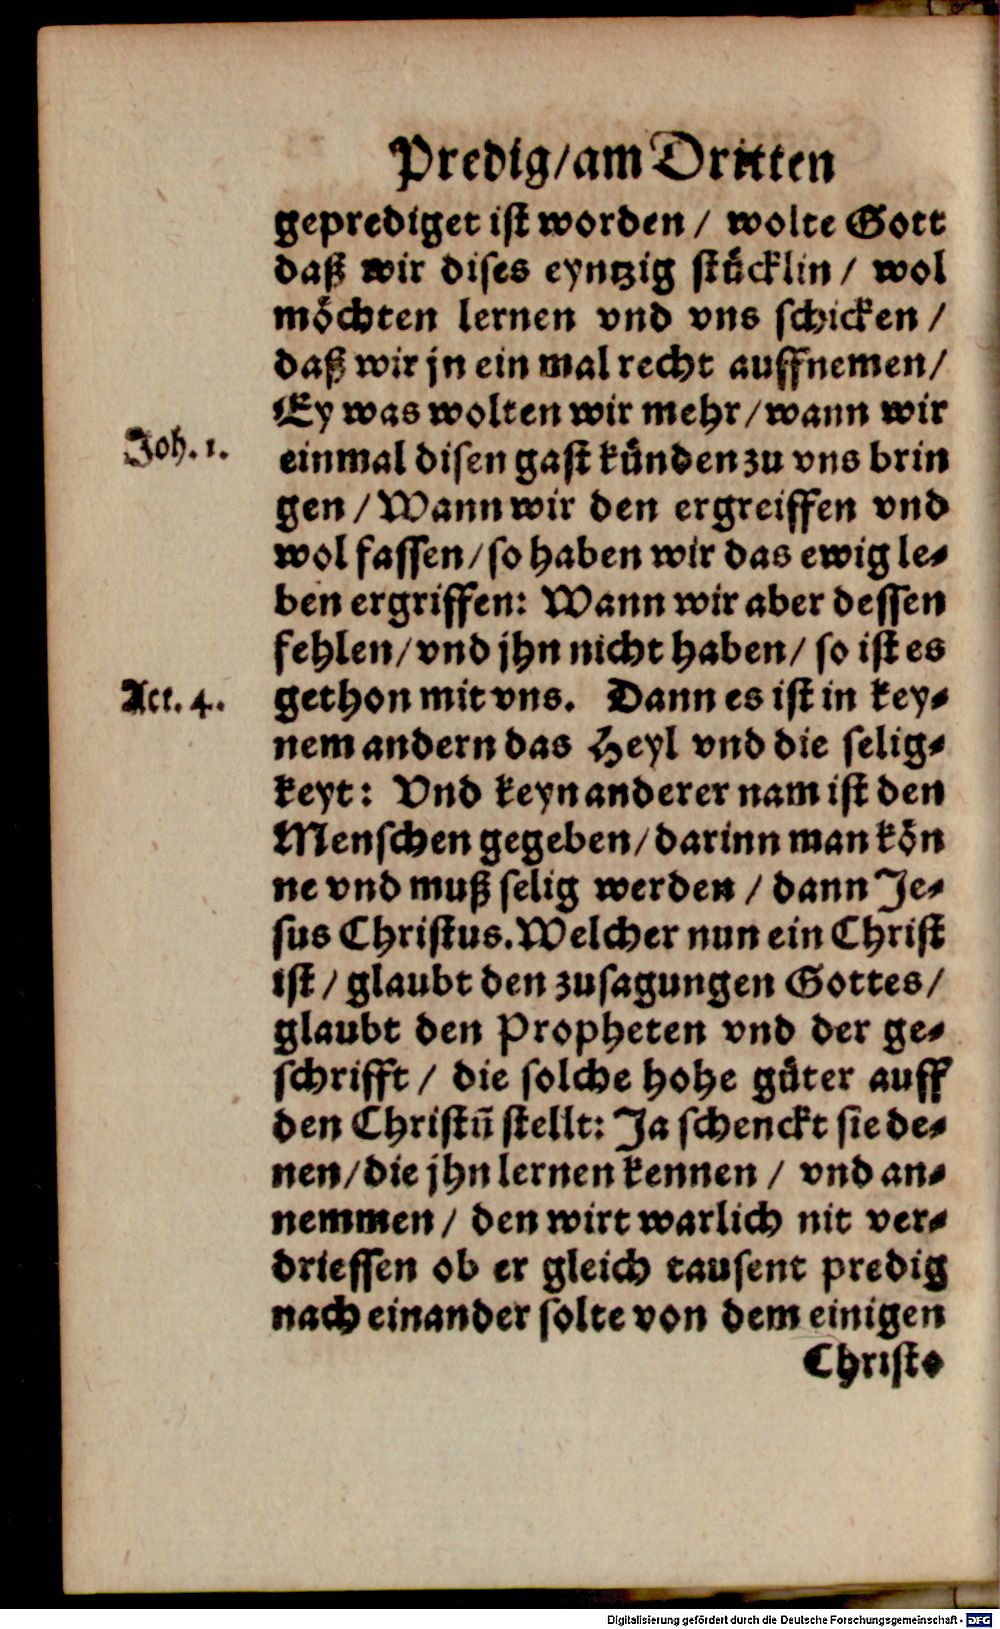 Predig/am Dritten
geprediget ist worden / wolte Gott
daß wir dises eyntzig stuͤcklin / wol
moͤchten lernen vnd vns schicken /
daß wir jn ein mal recht auffnemen/
Ey was wolten wir mehr/wann wir
Joh. 1.
einmal disen gast kuͤnden zu vns brin
gen / Wann wir den ergreiffen vnd
wol fassen/so haben wir das ewig le-
ben ergriffen: Wann wir aber dessen
fehlen/vnd jhn nicht haben/ so ist es
Act. 4.
gethon mit vns. Dann es ist in key-
nem andern das Heyl vnd die selig-
keyt: Vnd keyn anderer nam ist den
Menschen gegeben/darinn man koͤn
ne vnd muß selig werden / dann Je-
sus Christus. Welcher nun ein Christ
ist / glaubt den zusagungen Gottes/
glaubt den Propheten vnd der ge-
schrifft / die solche hohe guͤter auff
den Christū stellt: Ja schenckt sie de-
nen/die jhn lernen kennen / vnd an-
nemmen/ den wirt warlich nit ver-
driessen ob er gleich tausent predig
nach einander solte von dem einigen
Christo
Digitalisierung gefördert durch die Deutsche Forschungsgemeinschaft - DFG